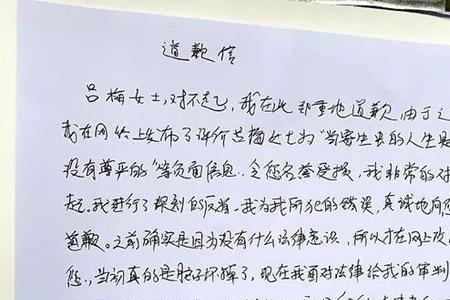 道歉信
吕梅女士,对不起,我在此郑重地道歉,由于之
我在网络上发布了评价吕梅女士为"当寄生虫的人生是
没有尊严的"等负面信息..令您名誉受损,我非常的对
起,我进行了深刻的反省.我为我所犯的错误,真诚地向您
道歉。之前确实是因为没有什么法律意识,所以才在网上攻
您,当初真的是脑子坏掉了,现在我面对法律给我的审判